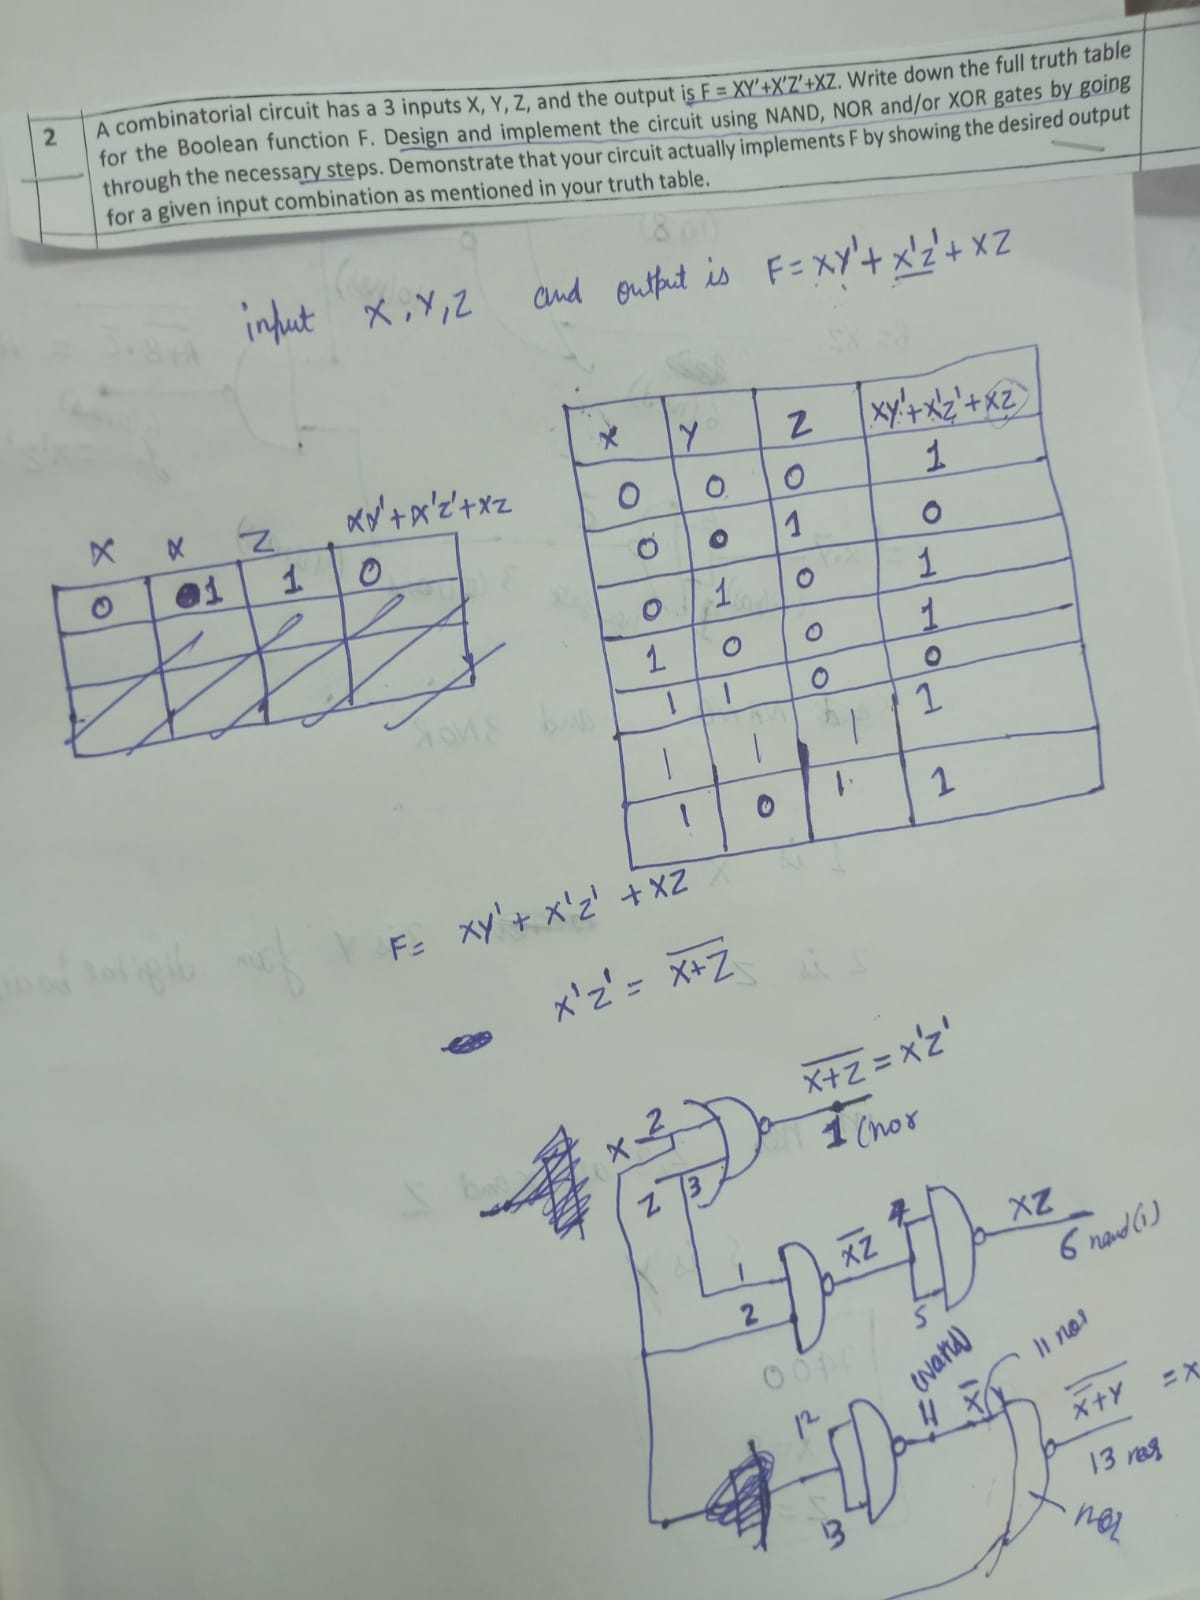 2
A combinatorial circuit has a 3 inputs X, Y, Z, and the output is F = XY'+X'Z'+XZ. Write down the full truth table
for the Boolean function F. Design and implement the circuit using NAND, NOR and/or XOR gates by going
through the necessary steps. Demonstrate that your circuit actually implements F by showing the desired output
for a given input combination as mentioned in your truth table.
input X, Y, Z and output is F = XY' + X'Z' + XZ
X Y Z XY'+X'Z'+XZ
0 0 0 1
0 0 1 0
0 1 0 1
1 0 0 1
1 1 0 0
1 1 1 1
1 0 1 1
X X Z XY'+X'Z'+XZ
0 1 1 0
F= XY' + X'Z' + XZ
X'Z' = \overline{X+Z}
X 2
Z 3
\overline{X+Z} = X'Z'
1 (nor
1
2
\overline{XZ}
4
5
XZ
6 nand(1)
12
13
11
\overline{X}
11 nor
\overline{\overline{X}+Y} = X
13 nor
nor